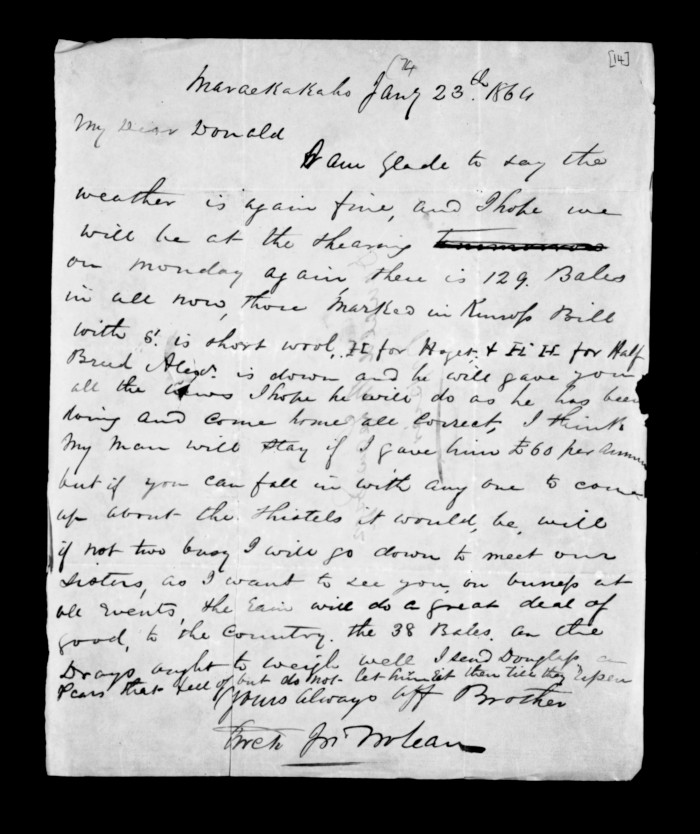 [14]
74
Maraekakaho Jany 23th 1864
My Dear Donald
I am glade to say the
weather is again fine, and I hope we
will be at the shearing
on monday again, there is 129. Bales
in all now, those Marked in Kinross Bill
with S. is short wool, H for Hoget, & H H for Half
Bred Alexr. is down and he will gave you
all the news I hope he will do as he has been
doing and come home all correct, I think
My Man will stay if I gave him £60 per annum
but if you can fall in with any one to come
up about the thistels it would, be, will
if not two busy I will go down to meet our
Sisters, as I want to see you, on buness at
all Events, the Eain will do a great deal of
good, to the Country. the 38 Bales. on the
Drays ought to weigh well I send Douglass a
Pears that fell of but do not let him Eat them till they Ripen
Yours Always aff Brother
Arch Jn McLean